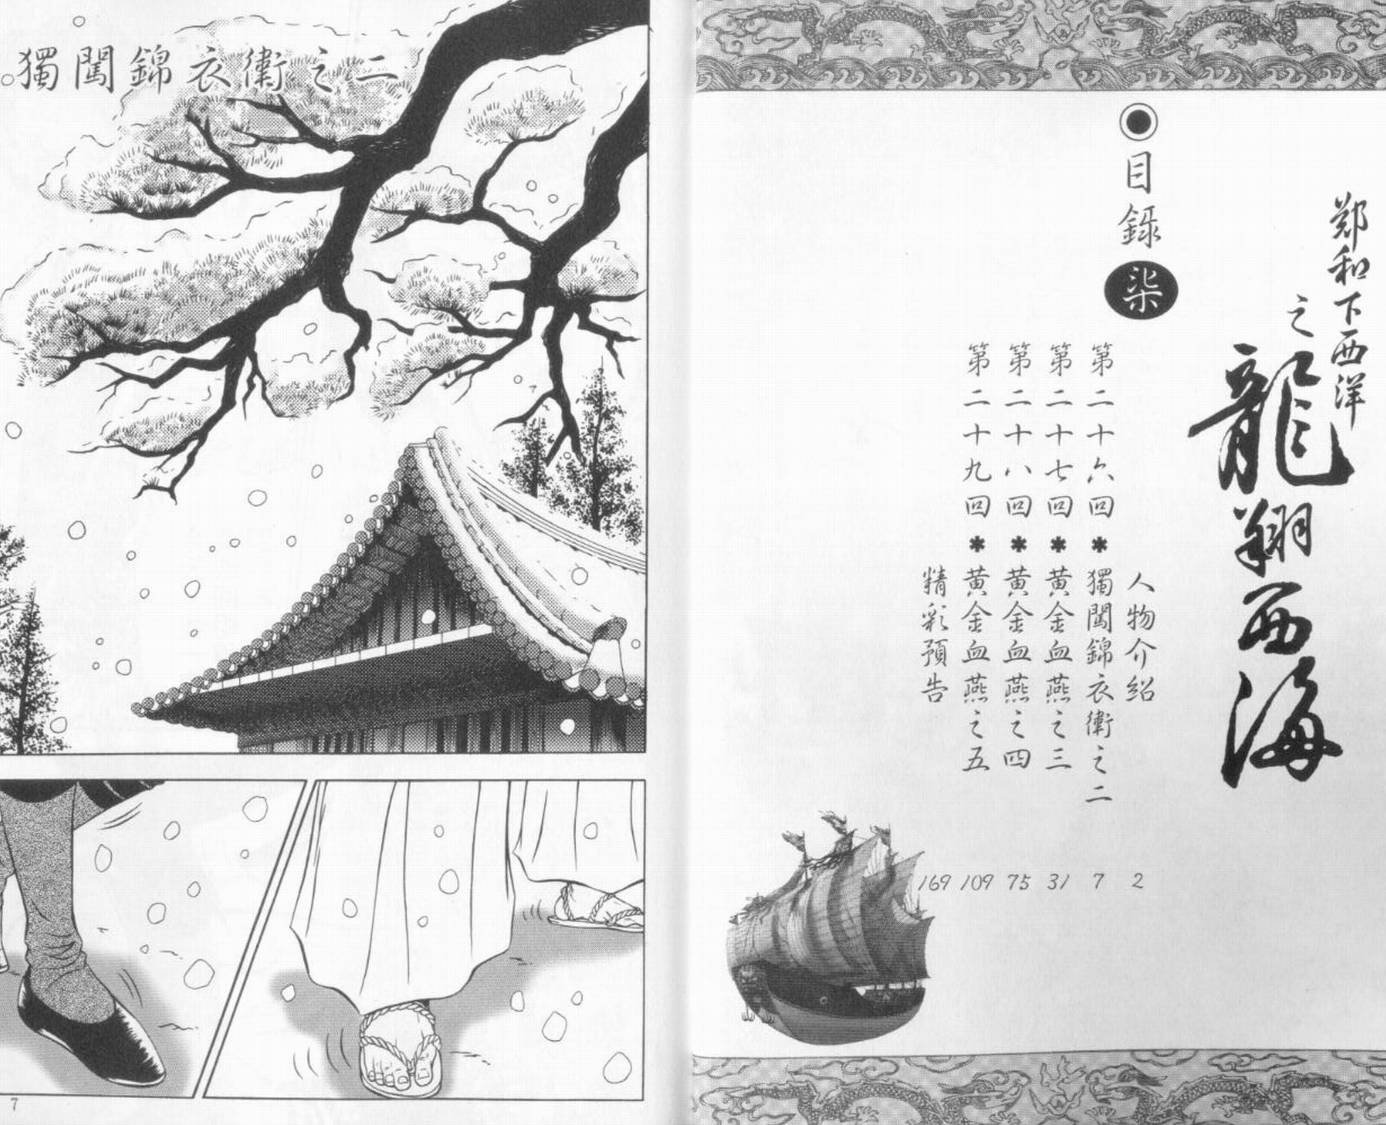 鄭和下西洋
之
龍翔西海
目錄
柒
人物介紹 2
第二十六回＊獨闖錦衣衛之二 7
第二十七回＊黃金血燕之三 31
第二十八回＊黃金血燕之四 75
第二十九回＊黃金血燕之五 109
精彩預告 169
獨闖錦衣衛之二
7